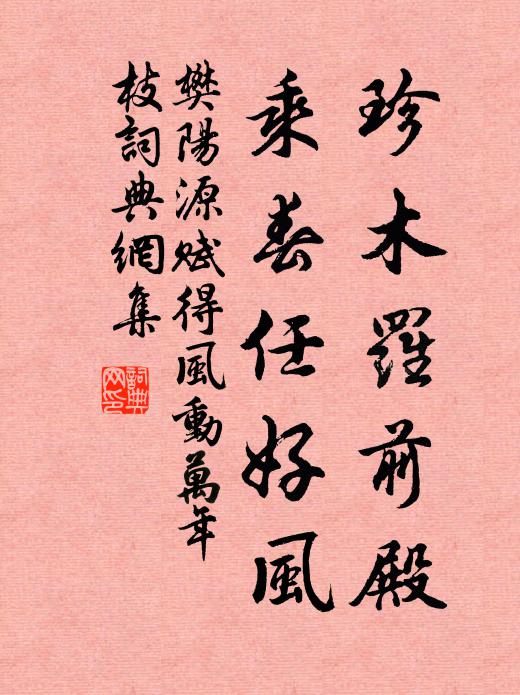 珍木羅前殿
乘春任好風
樊陽源賦得風動萬年
枝詞典網集
詞典网印